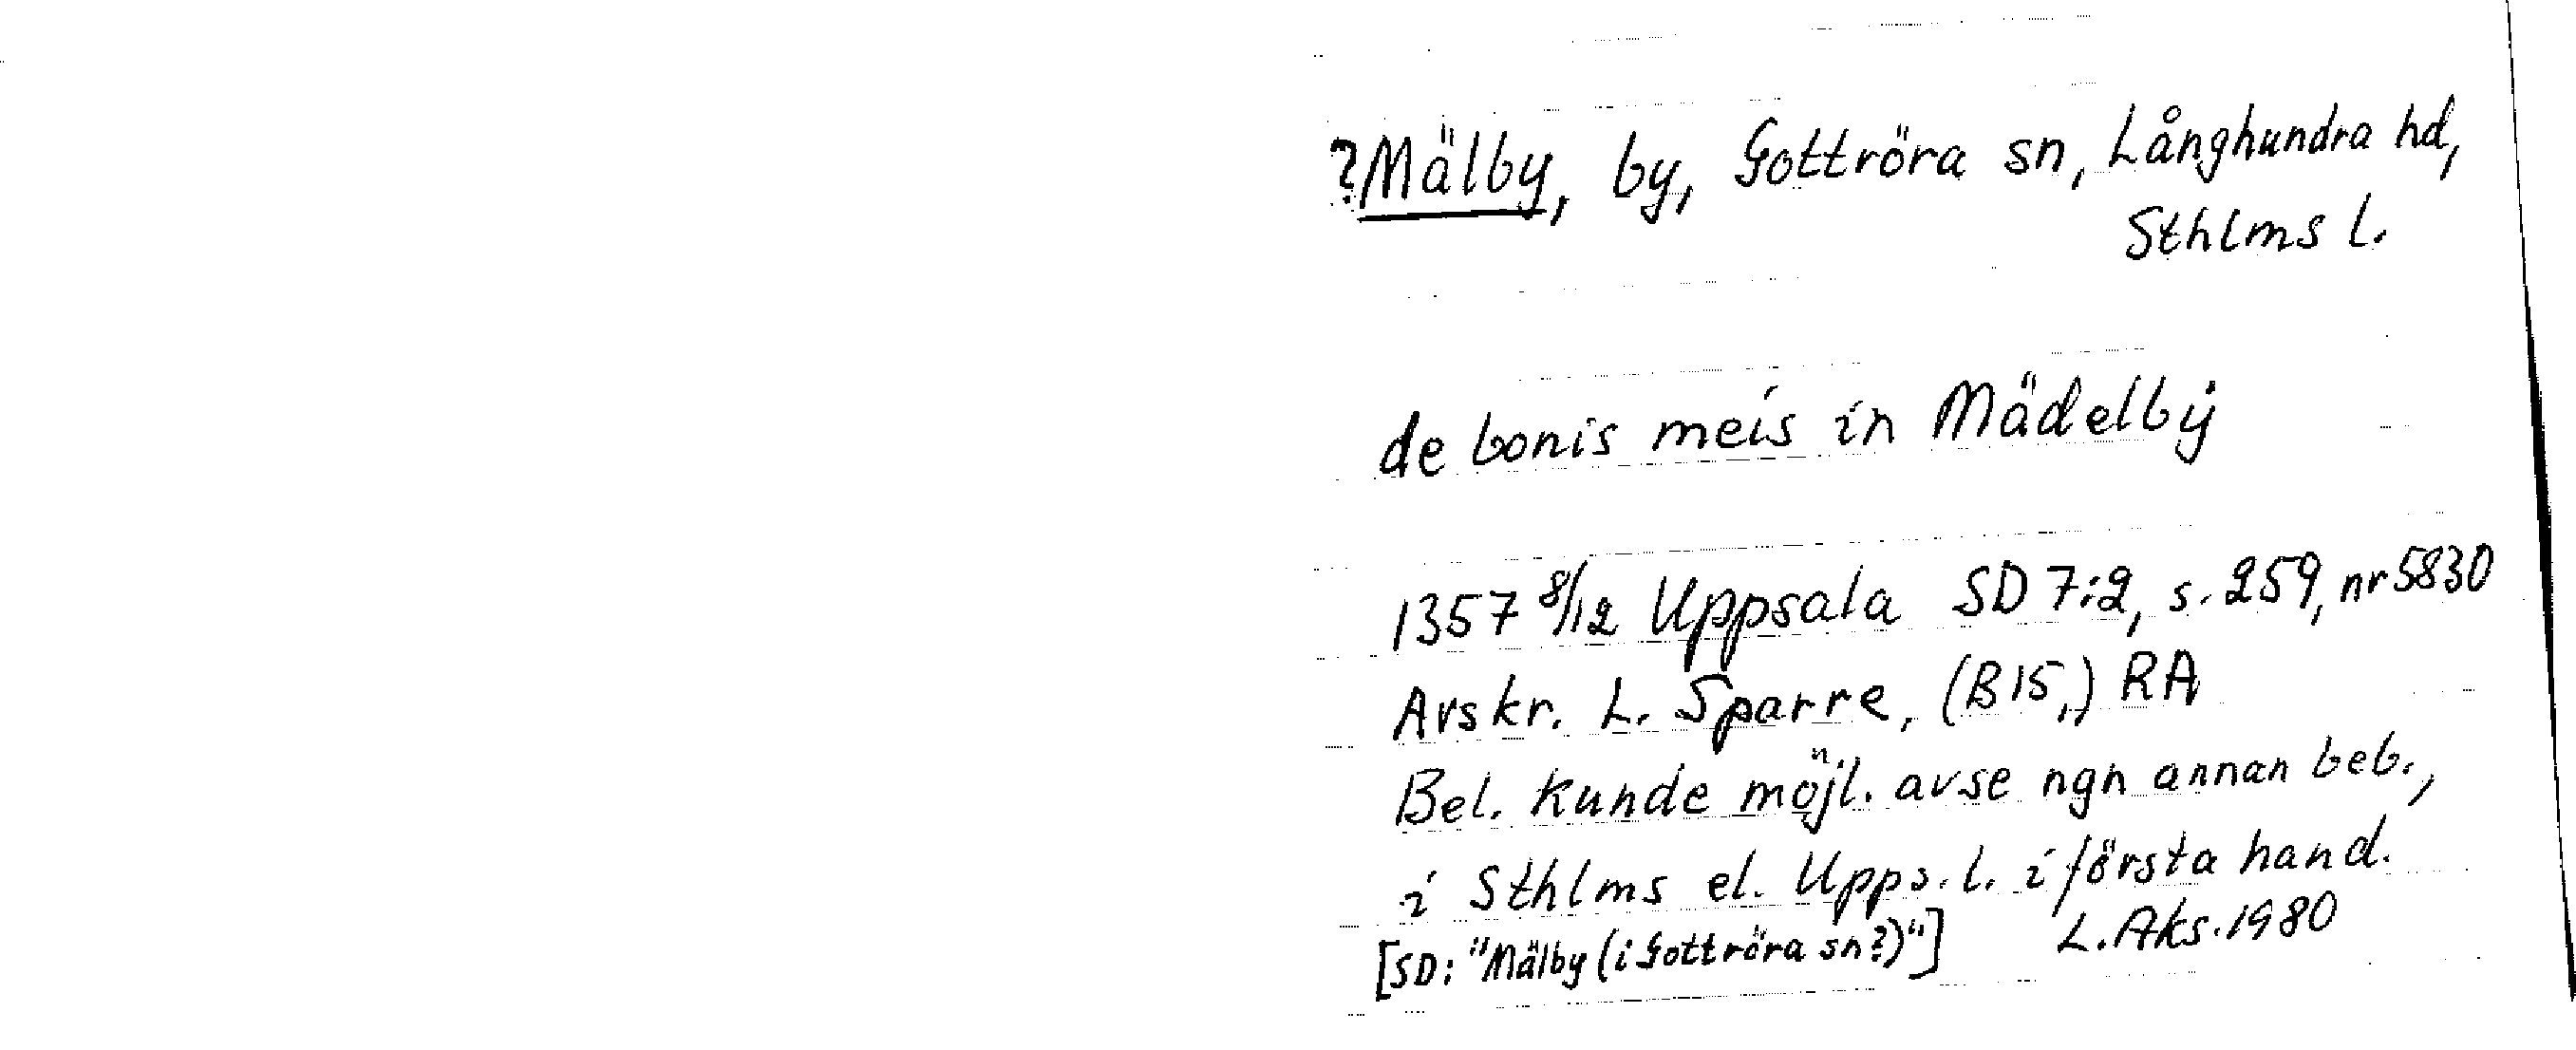 ?Mälby, by, Gottröra sn, Långhundra hd,
Sthlms l.
de bonis meis in Mädelbÿ
1357 8/12 Uppsala SD 7:2, s. 259, nr 5830
Avskr. L. Sparre, (B15,) RA
Bel. kunde möjl. avse ngn annan beb.,
i Sthlms el. Upps. l. i första hand.
[SD: "Mälby (i Gottröra sn?)"] L. Aks. 1980